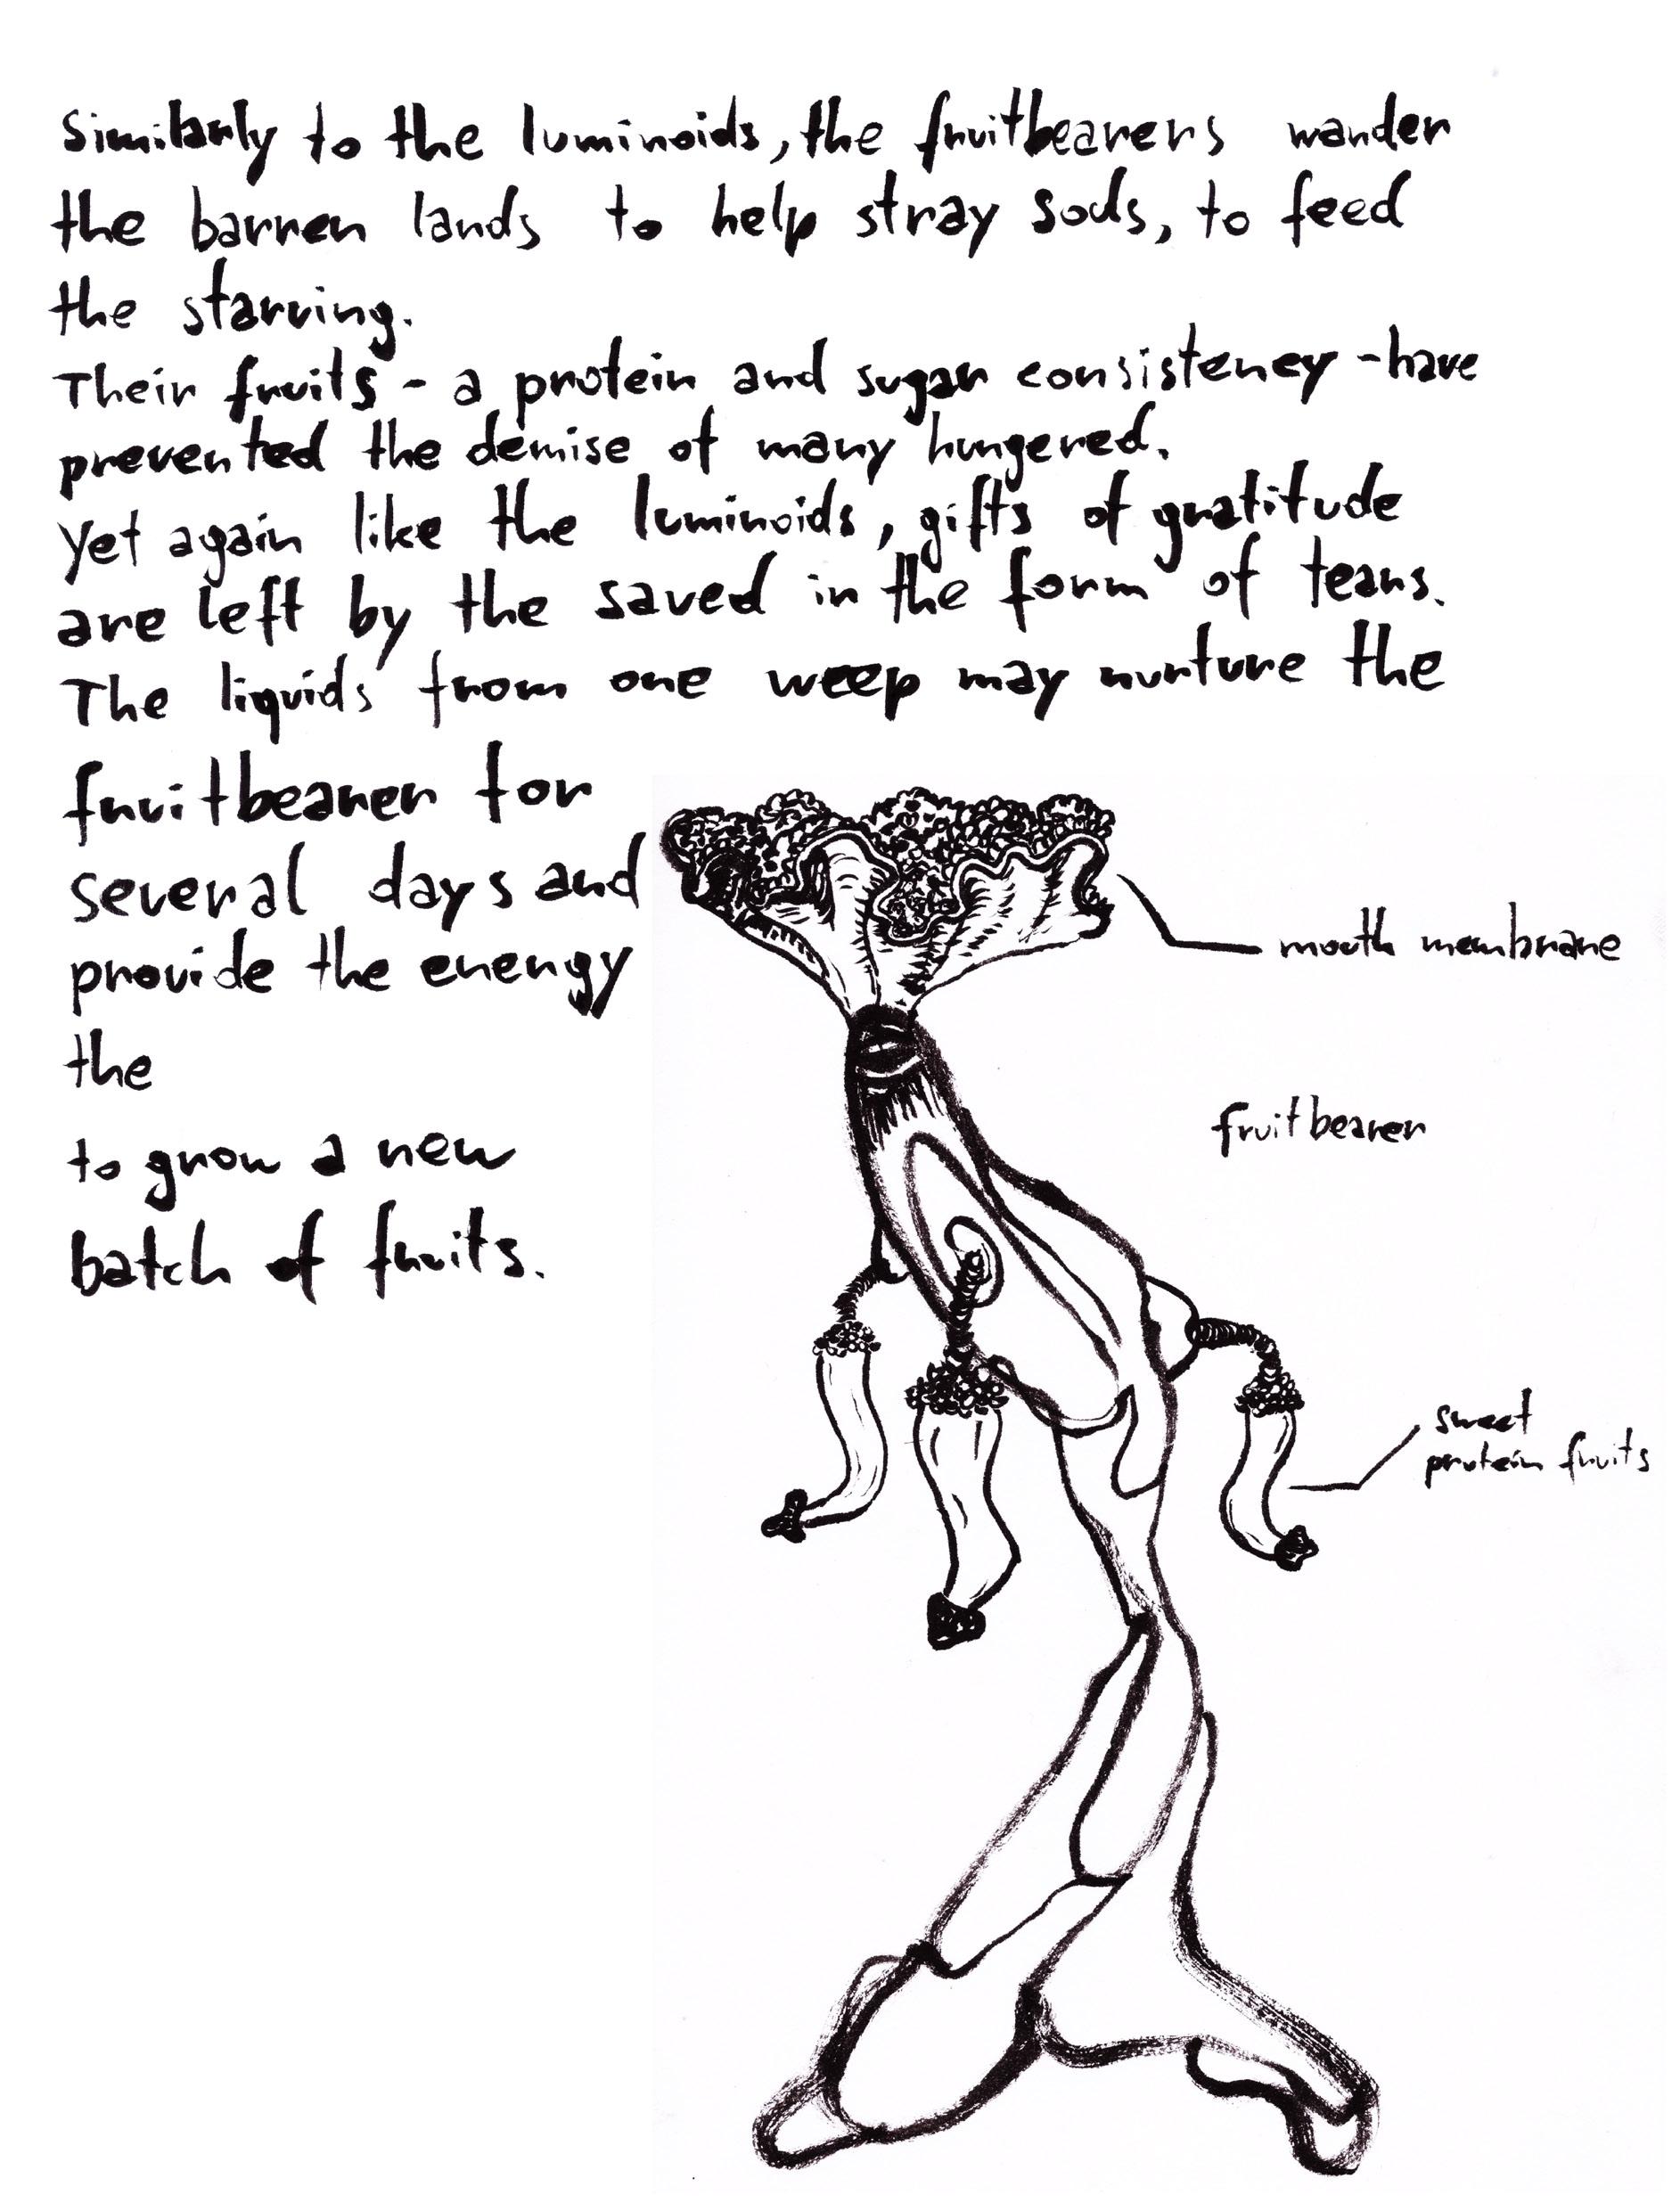 Similarly to the luminoids, the fruitbearers wander
the barren lands to help stray souls, to feed
the starving.
Their fruits - a protein and sugar consistency - have
prevented the demise of many hungered.
Yet again like the luminoids, gifts of gratitude
are left by the saved in the form of tears.
The liquids from one weep may nurture the
fruitbearer for
several days and
provide the energy
the
to grow a new
batch of fruits.
mouth membrane
fruitbearer
sweet
protein fruits